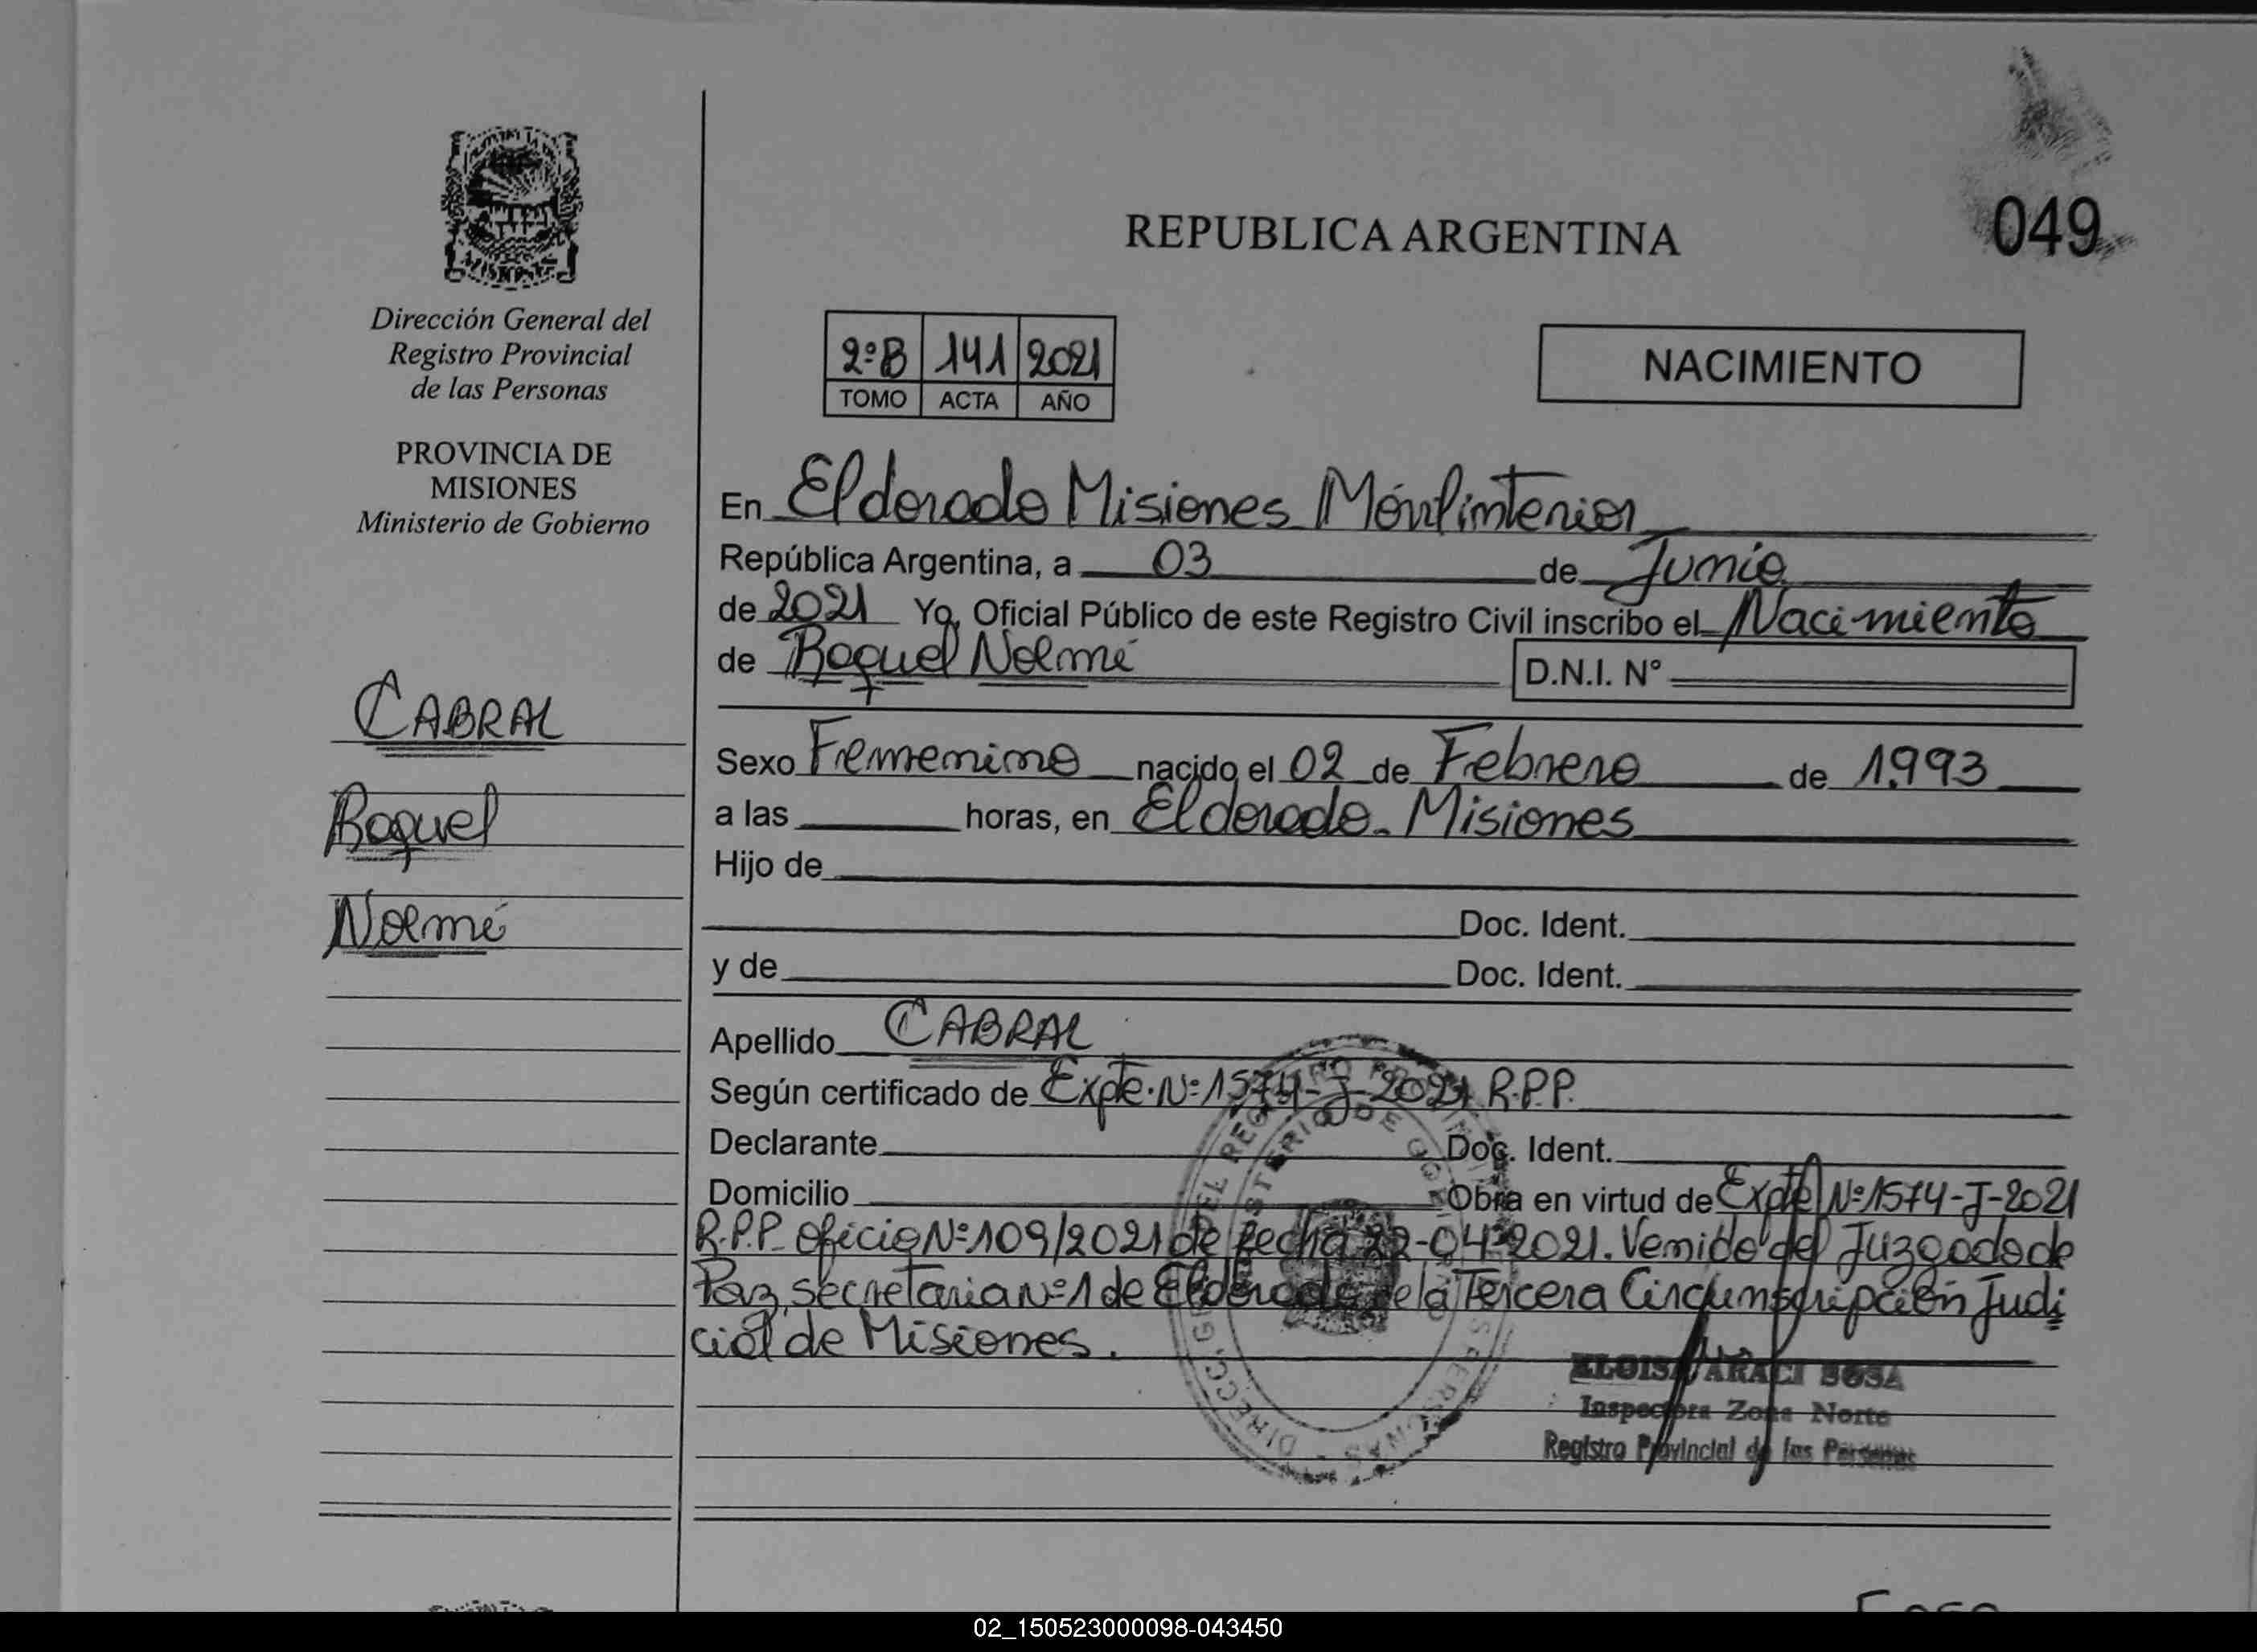 REPUBLICA ARGENTINA
049
Dirección General del
Registro Provincial
de las Personas
PROVINCIA DE
MISIONES
Ministerio de Gobierno
CABRAL
Raquel
Noemí
2ºB 141 2021
TOMO ACTA AÑO
NACIMIENTO
En Eldorado Misiones Móvil interior
República Argentina, a 03 de Junio
de 2021 Yo, Oficial Público de este Registro Civil inscribo el Nacimiento
de Raquel Noemí D.N.I. N°
Sexo Femenino nacido el 02 de Febrero de 1993
a las horas, en Eldorado - Misiones
Hijo de
Doc. Ident.
y de Doc. Ident.
Apellido CABRAL
Según certificado de Expte. Nº 1574-J-2021 R.P.P.
Declarante Doc. Ident.
Domicilio Obra en virtud de Expte Nº 1574-J-2021
R.P.P. Oficio Nº 109/2021 de fecha 22-04-2021. Venido del Juzgado de
Paz, secretaria Nº 1 de Eldorado de la Tercera Circunscripción Judi
cial de Misiones.
ELOISA ARACI SOSA
Inspectora Zona Norte
Registro Provincial de las Personas
02_150523000098-043450